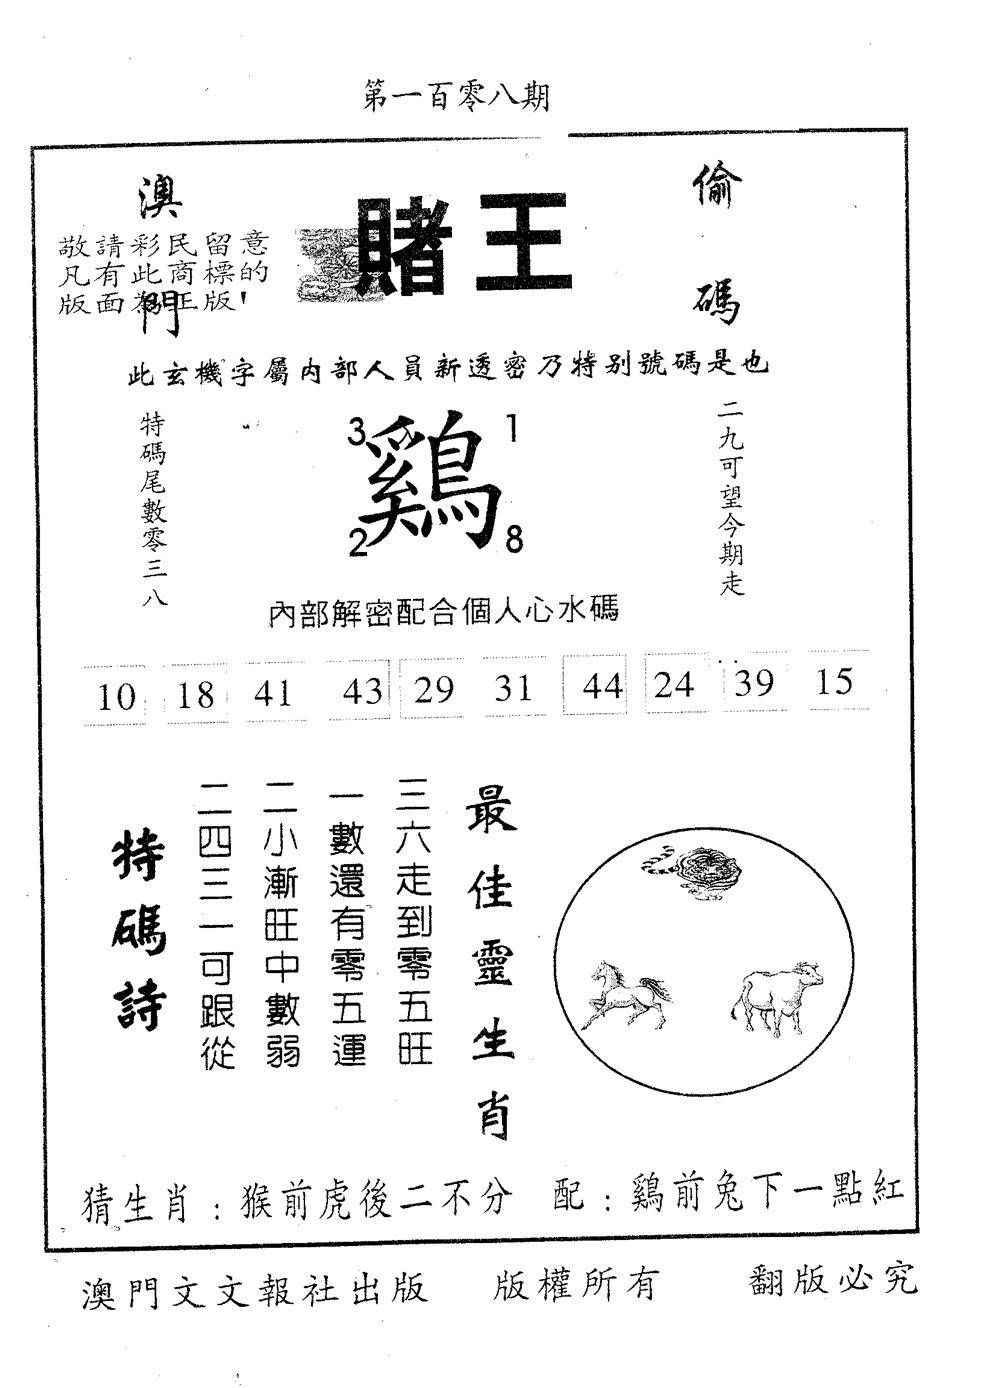 第一百零八期
澳門
賭王
偷碼
敬請彩民留意
凡有此商標的
版面為正版!
此玄機字屬內部人員新透密乃特别號碼是也
特碼尾數零三八
3 1
鷄
2 8
二九可望今期走
內部解密配合個人心水碼
10 18 41 43 29 31 44 24 39 15
最佳靈生肖
三六走到零五旺
一數還有零五運
二小漸旺中數弱
二四三一可跟從
特碼詩
猜生肖：猴前虎後二不分 配：鷄前兔下一點紅
澳門文文報社出版 版權所有 翻版必究